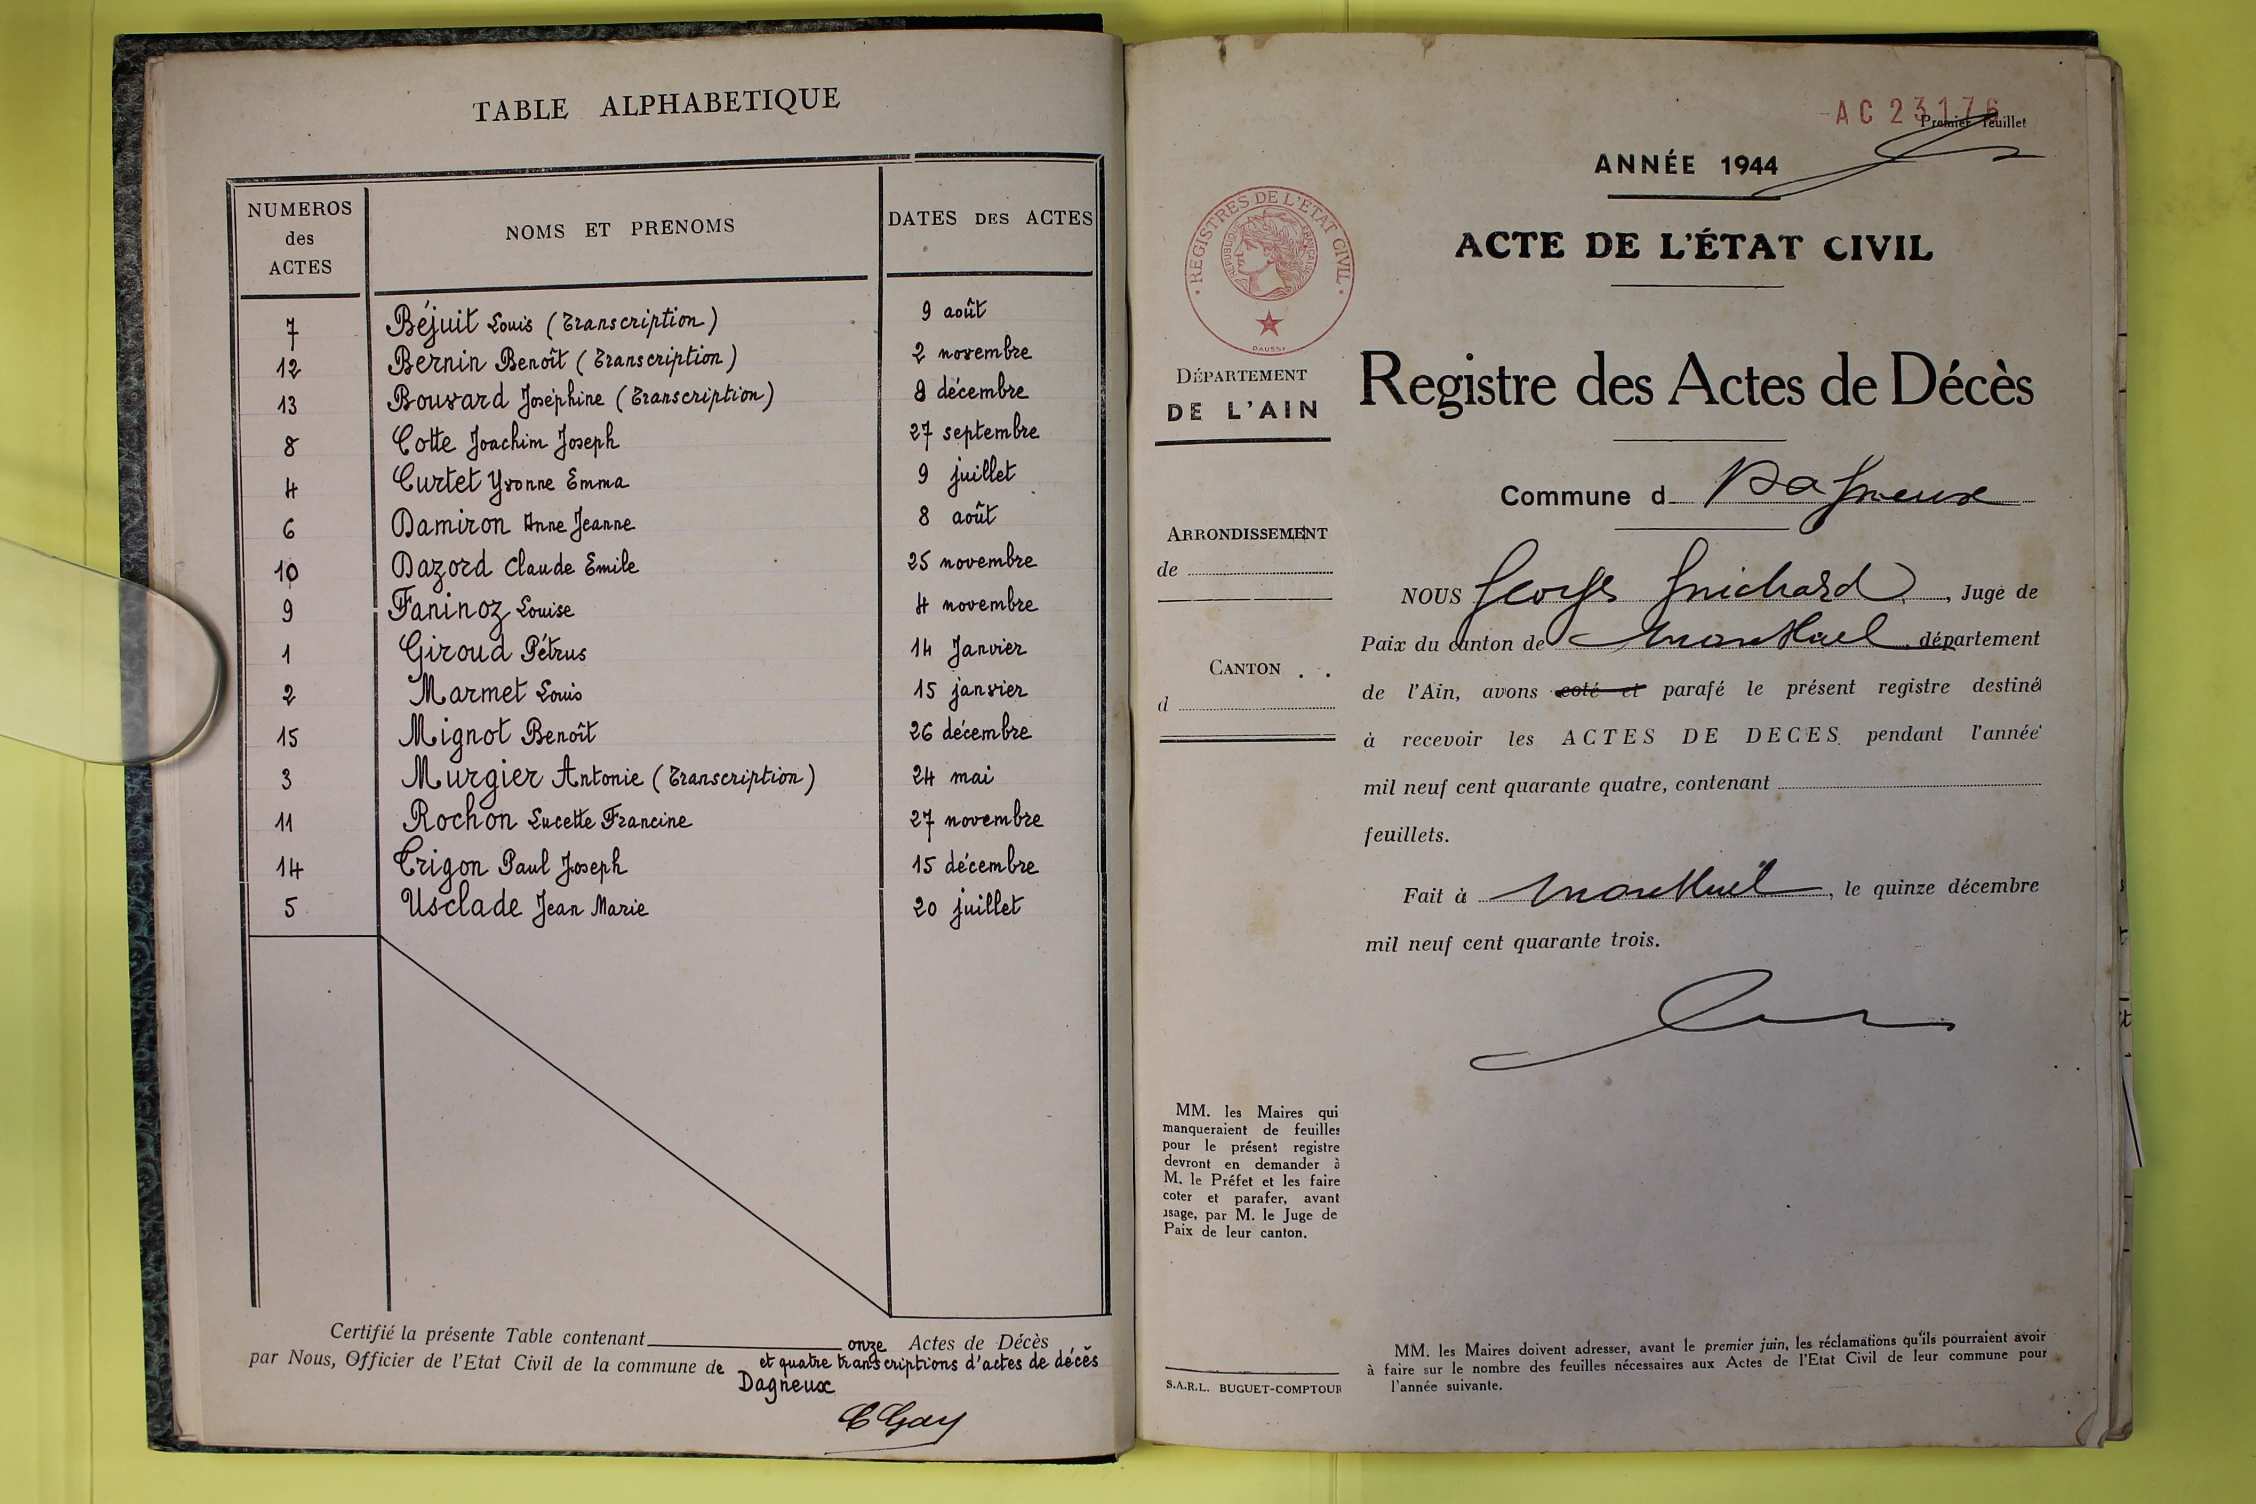 TABLE ALPHABETIQUE
NUMEROS des ACTES
NOMS ET PRENOMS
DATES DES ACTES
7 Béjuit Louis (Transcription) 9 août
12 Bernin Benoît (Transcription) 2 novembre
13 Bouvard Joséphine (Transcription) 8 décembre
8 Cotte Joachim Joseph 27 septembre
4 Curtet Yvonne Emma 9 juillet
6 Damiron Anne Jeanne 8 août
10 Dazord Claude Emile 25 novembre
9 Faninoz Louise 4 novembre
1 Giroud Pétrus 14 Janvier
2 Marmet Louis 15 janvier
15 Mignot Benoît 26 décembre
3 Murgier Antonie (Transcription) 24 mai
11 Rochon Lucette Francine 27 novembre
14 Trigon Paul Joseph 15 décembre
5 Usclade Jean Marie 20 juillet
Certifié la présente Table contenant onze Actes de Décès
et quatre transcriptions d'actes de décès
par Nous, Officier de l'Etat Civil de la commune de
Dagneux
C Gay
AC 23176
Premier feuillet
ANNÉE 1944
ACTE DE L'ÉTAT CIVIL
REGISTRES DE L'ETAT CIVIL
REPUBLIQUE FRANÇAISE
DAUSSY
DÉPARTEMENT
DE L'AIN
Registre des Actes de Décès
Commune d Dagneux
ARRONDISSEMENT
de
CANTON
d
NOUS Georges Guichard, Juge de
Paix du canton de Montluel, département
de l'Ain, avons coté et parafé le présent registre destiné
à recevoir les ACTES DE DECES pendant l'année
mil neuf cent quarante quatre, contenant
feuillets.
Fait à Montluel, le quinze décembre
mil neuf cent quarante trois.
MM. les Maires qui
manqueraient de feuilles
pour le présent registre
devront en demander à
M. le Préfet et les faire
coter et parafer, avant
usage, par M. le Juge de
Paix de leur canton.
S.A.R.L. BUGUET-COMPTOUR
MM. les Maires doivent adresser, avant le premier juin, les réclamations qu'ils pourraient avoir
à faire sur le nombre des feuilles nécessaires aux Actes de l'Etat Civil de leur commune pour
l'année suivante.